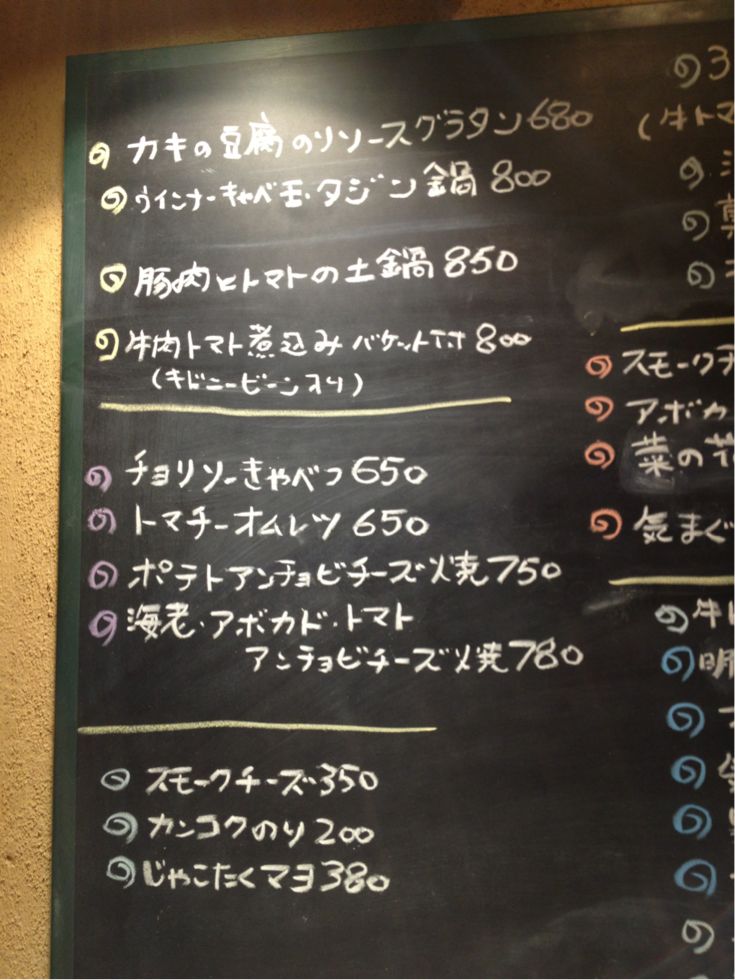 カキの豆腐のリソースグラタン680
ウインナーキャベモ・タジン鍋800
豚肉とトマトの土鍋850
牛肉トマト煮込みバケット付800
(キドニービーン入り)
チョリソーきゃべつ650
トマチーオムレツ650
ポテトアンチョビチーズ焼750
海老・アボカド・トマト
アンチョビチーズ焼780
スモークチーズ350
カンコクのり200
じゃこたくマヨ380
3
(牛トマ
スモークチ
アボカ
菜の花
気まぐ
牛
明